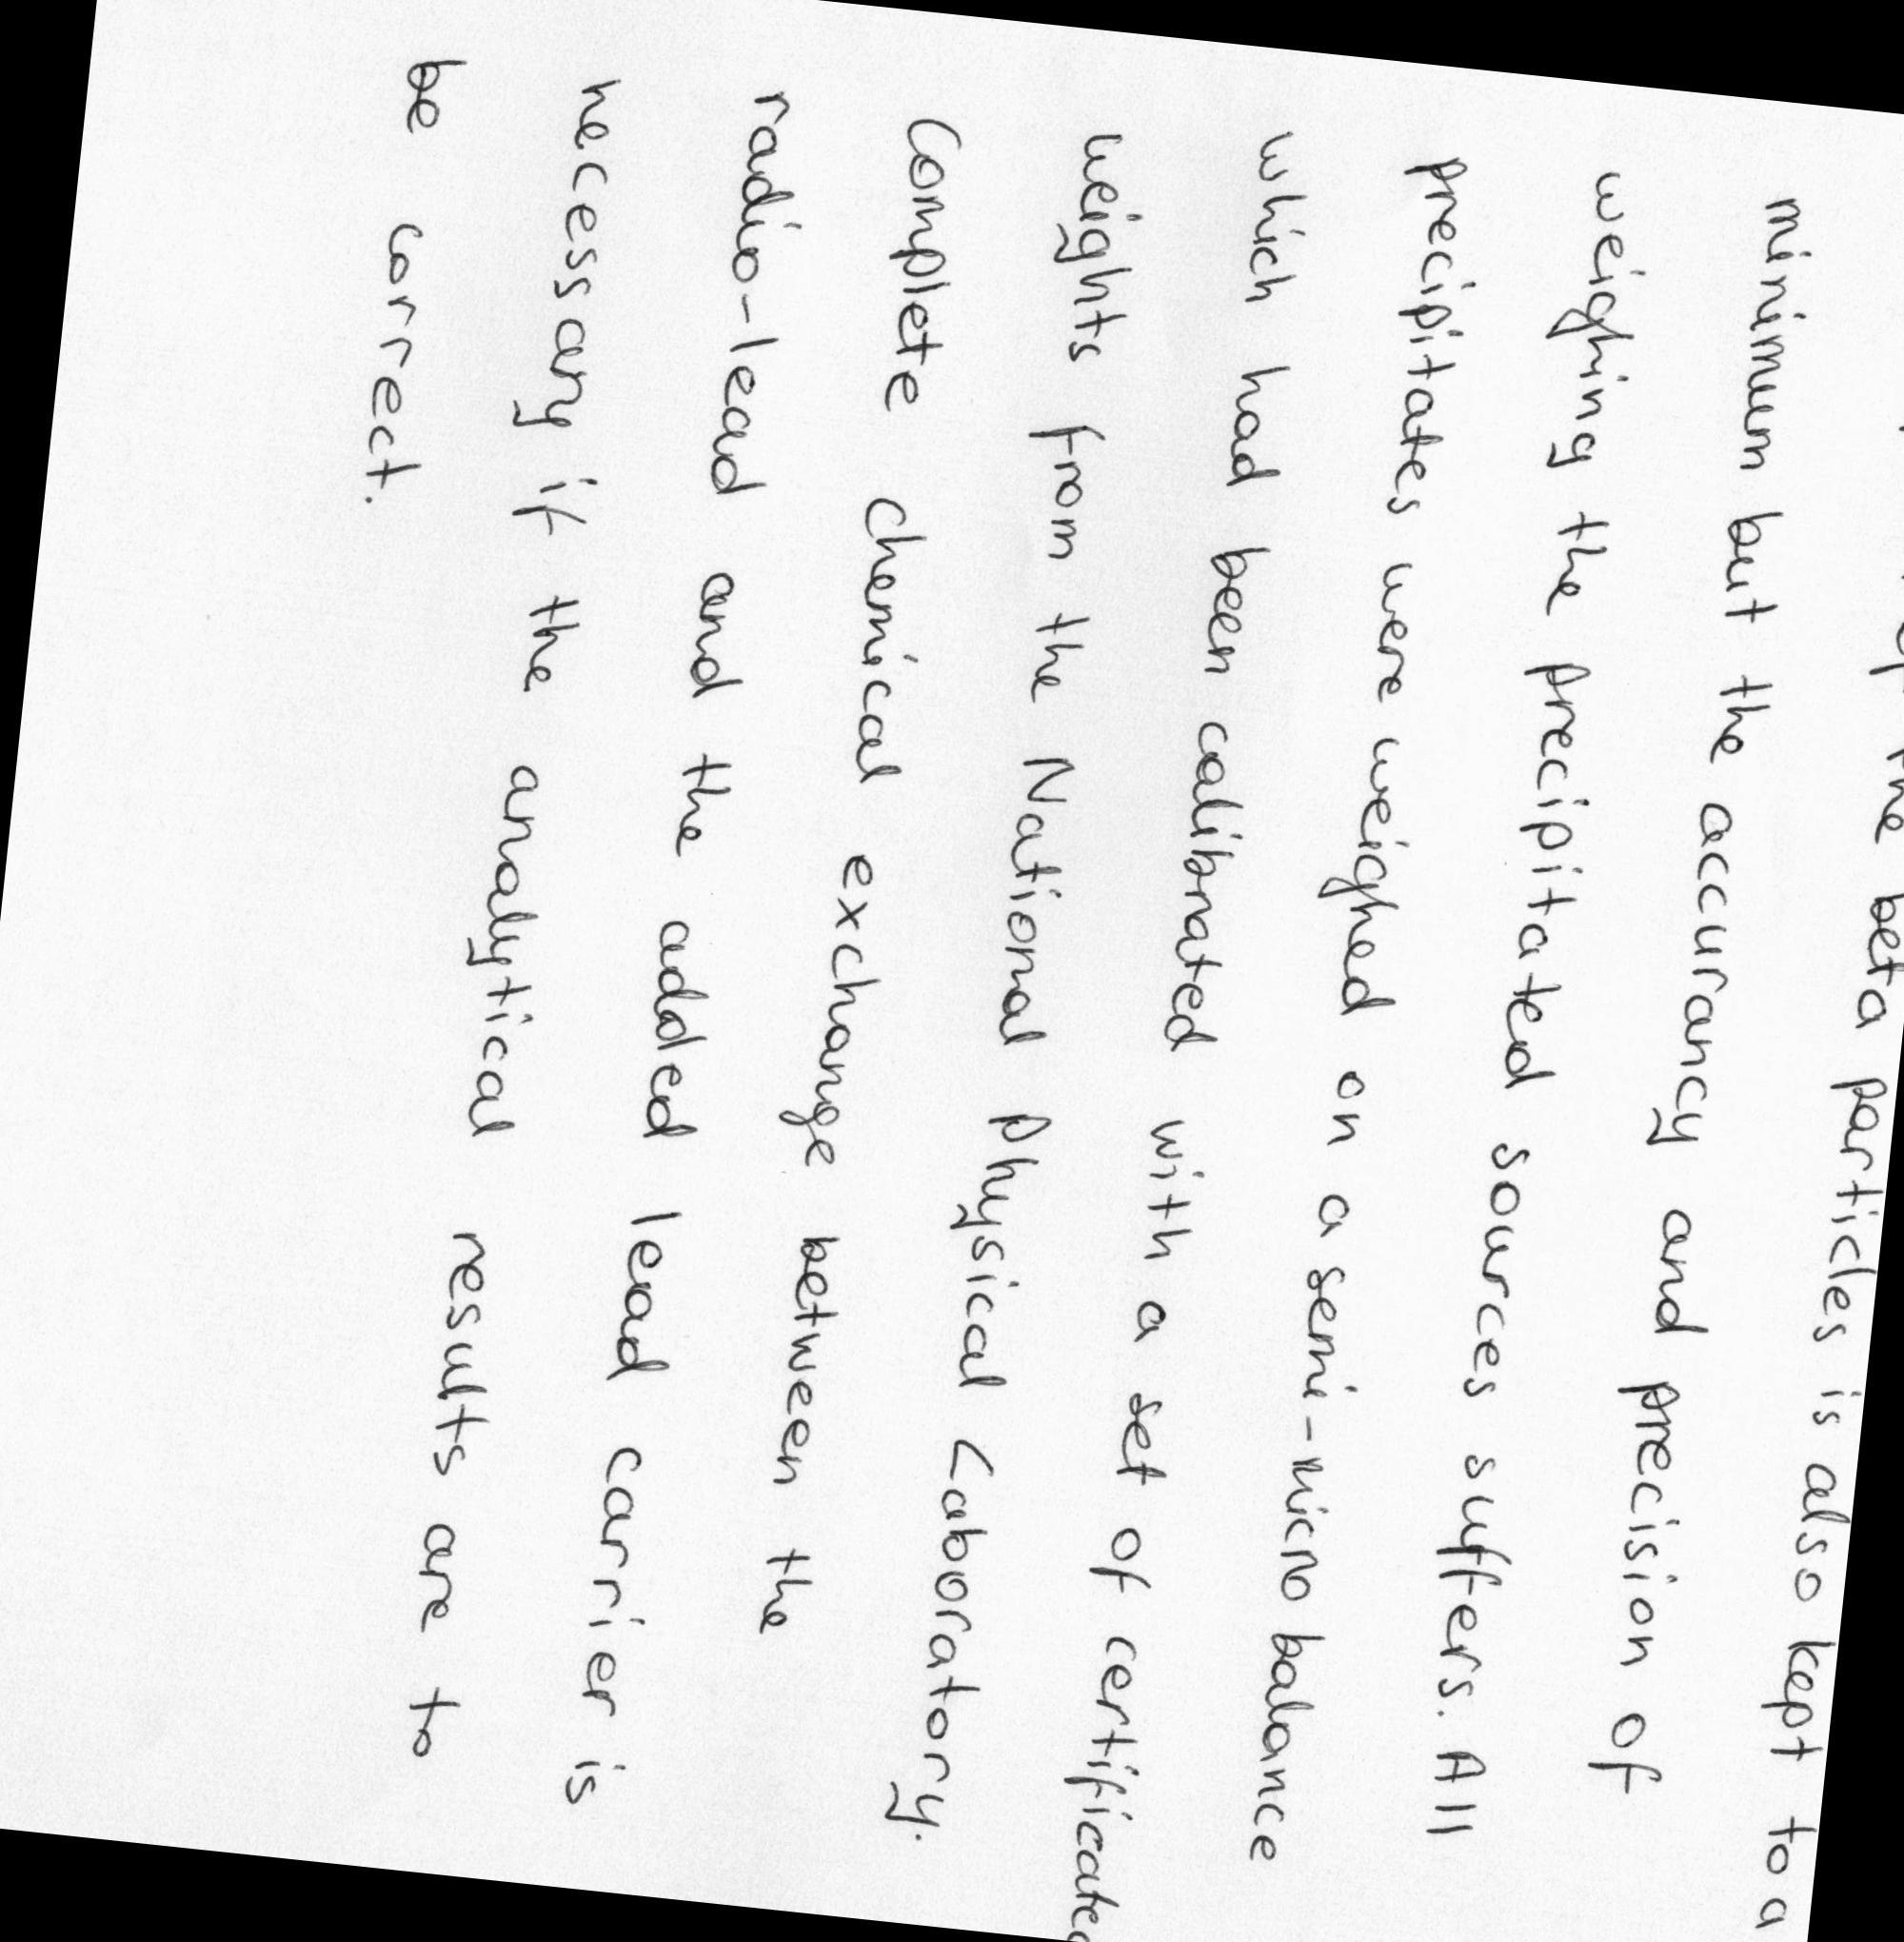 the beta particles is also kept to a
minimum but the accurancy and precision of
weighing the precipitated sources suffers. All
precipitates were weighed on a semi-micro balance
which had been calibrated with a set of certificated
weights from the National Physical Laboratory.
Complete chemical exchange between the
radio-lead and the added lead carrier is
necessary if the analytical results are to
be correct.